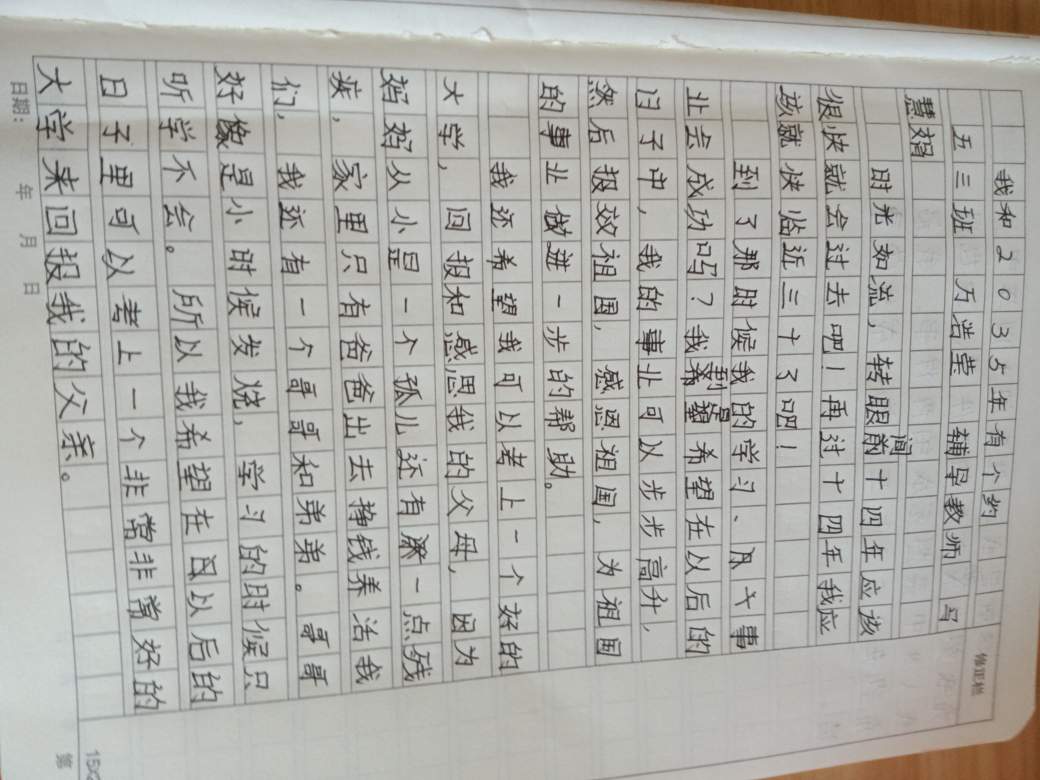 我和2035年有个约
五三班 万浩莹 辅导教师 马
慧娟
时光如流,转眼间十四年应该
很快就会过去吧!再过十四年我应
该就快临近三十了吧!
到了那时候我的学习、事
业会成功吗?我希望在以后的
日子中,我的事业可以步步高升,
然后报效祖国,感恩祖国,为祖国
的事业做进一步的帮助。
我还希望我可以考上一个好的
大学,回报和感恩我的父母,因为
妈妈从小是一个孤儿还有一点残
疾,家里只有爸爸出去挣钱养活我
们,我还有一个哥哥和弟弟。哥哥
好像是小时候发烧,学习的时候只
听学不会。所以我希望在以后的
日子里可以考上一个非常非常好的
大学来回报我的父亲。
修正栏
日期: 年 月 日
第